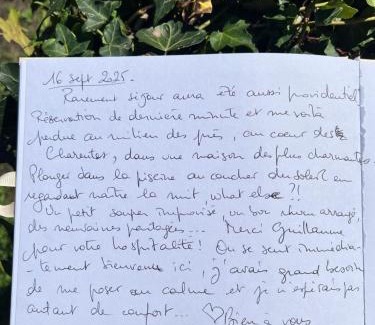 16 sept 2025.
Rarement séjour aura été aussi providentiel
Réservation de dernière minute et me voilà
perdue au milien des prés, au coeur des
Charentes, dans une maison des plus charmantes.
Plonger dans la piscine au coucher du soleil en
regardant naître la nuit, what else ?!
Un petit souper improvisé, un bon rhum arrangé,
des semaines partagées... Merci Guillaume
pour votre hospitalité ! On se sent immédia-
-tement bienvenu ici, j'avais grand besoin
de me poser au calme et je n'espérais pas
autant de confort... ♡ Bien à vous